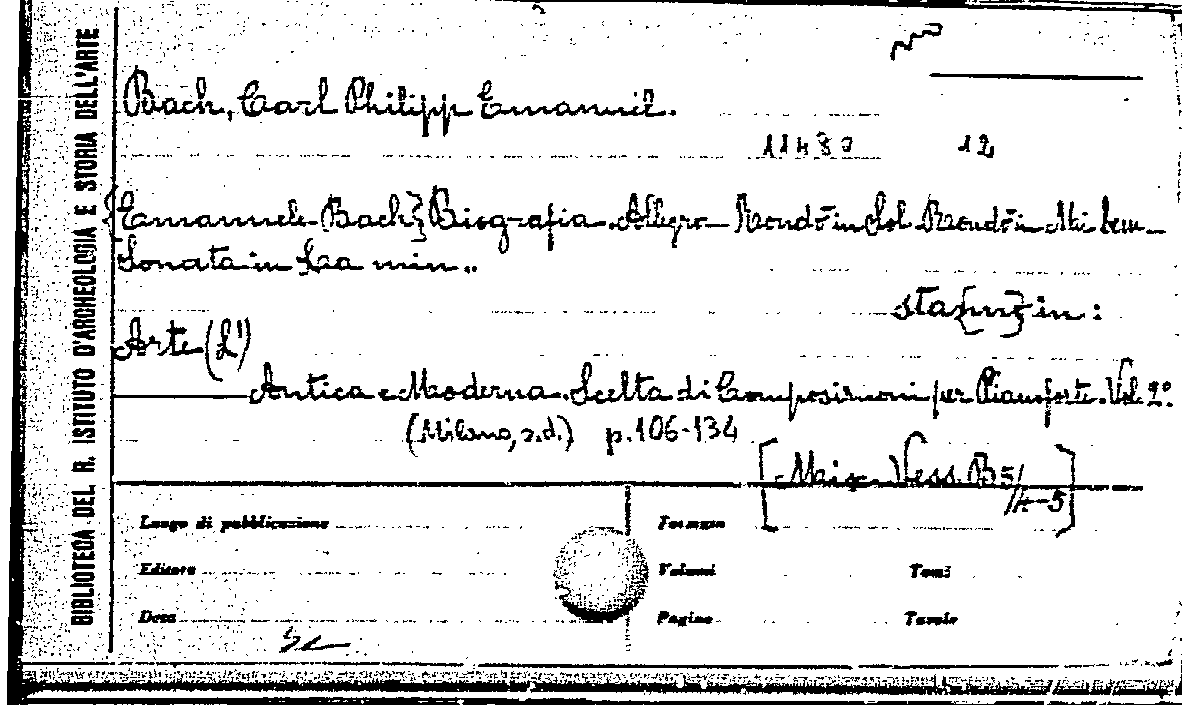 BIBLIOTECA DEL R. ISTITUTO D'ARCHEOLOGIA E STORIA DELL'ARTE
Bach, Carl Philipp Emanuil.
12
{Emanuele Bach} Biografia. Allegro Rondò in Sol. Rondò in Mi bem.
Sonata in La min..
sta[m] in:
Arte (L')
Antica e Moderna. Scelta di Composizioni per Pianoforte. Vol. 2º.
(Milano, s.d.) p. 106-134
Vess. B 5/4-5]
Luogo di pubblicazione
Formato
Editore
Volumi
Tomi
Data
Pagine
Tavole